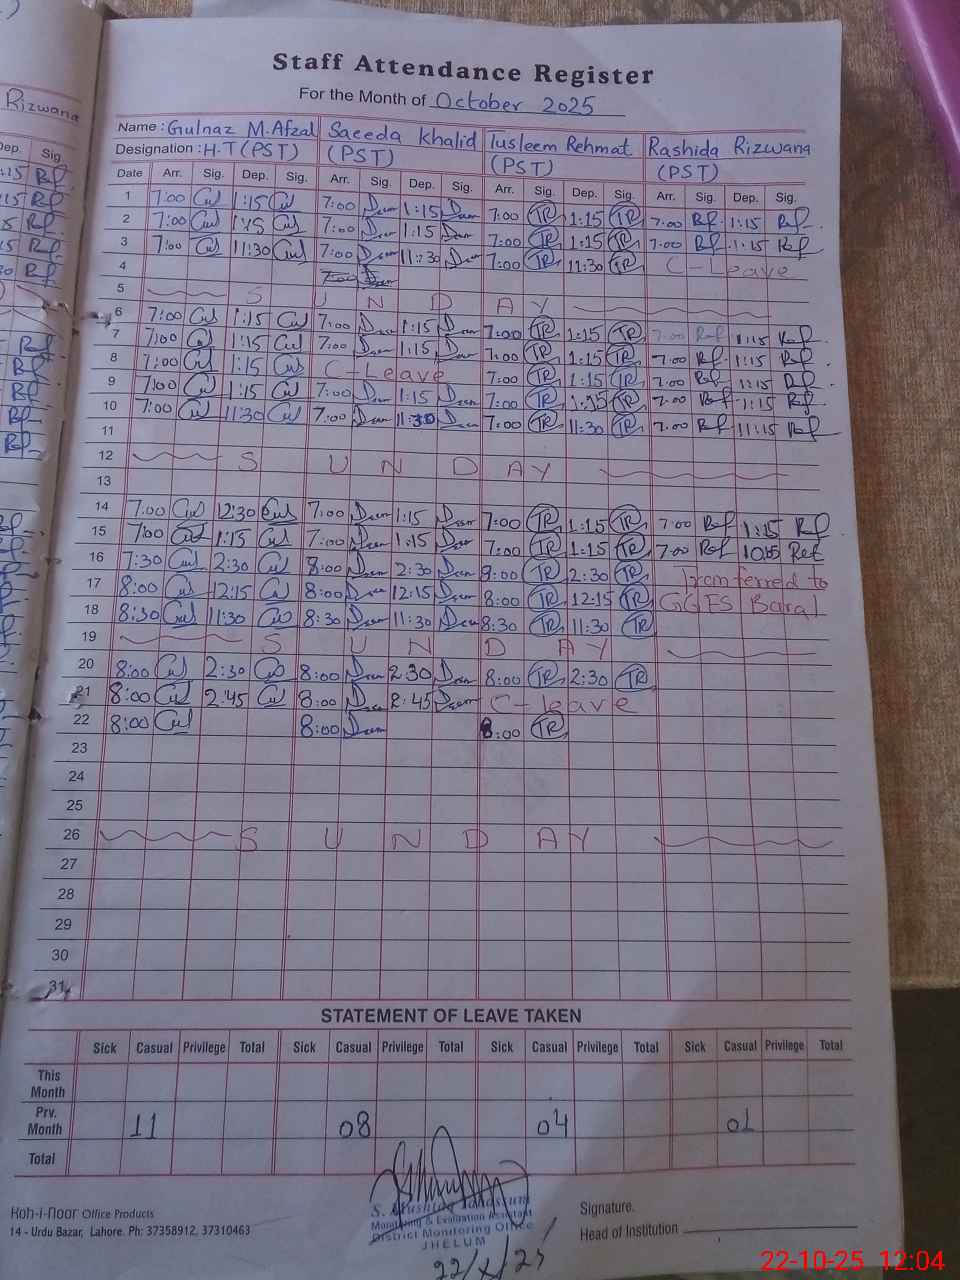 Rizwana
Staff Attendance Register
For the Month of October 2025
Name : Gulnaz M.Afzal Saeeda Khalid Tusleem Rehmat Rashida Rizwana
Designation : H.T (PST) (PST) (PST) (PST)
Date Arr. Sig. Dep. Sig. Arr. Sig. Dep. Sig. Arr. Sig. Dep. Sig. Arr. Sig. Dep. Sig.
1 7:00 1:15 7:00 1:15 7:00 TR 1:15 TR 7:00 1:15
2 7:00 1:15 7:00 1:15 7:00 TR 1:15 TR 7:00 1:15
3 7:00 11:30 7:00 11:30 7:00 TR 11:30 TR C-Leave
4 7:00
5 SUNDAY
6 7:00 1:15 7:00 1:15 7:00 TR 1:15 TR 7:00 1:15
7 7:00 1:15 7:00 1:15 7:00 TR 1:15 TR 7:00 1:15
8 7:00 1:15 C-Leave 7:00 TR 1:15 TR 7:00 1:15
9 7:00 1:15 7:00 1:15 7:00 TR 1:15 TR 7:00 1:15
10 7:00 11:30 7:00 11:30 7:00 TR 11:30 TR 7:00 11:15
11
12 SUNDAY
13
14 7:00 12:30 7:00 1:15 7:00 TR 1:15 TR 7:00 1:15
15 7:00 1:15 7:00 1:15 7:00 TR 1:15 TR 7:00
16 7:30 2:30 8:00 2:30 9:00 TR 2:30 TR Tranferred to
17 8:00 12:15 8:00 12:15 8:00 TR 12:15 TR GGES Baral
18 8:30 11:30 8:30 11:30 8:30 TR 11:30 TR
19 SUNDAY
20 8:00 2:30 8:00 2:30 8:00 TR 2:30 TR
21 8:00 2:45 8:00 2:45 C-leave
22 8:00 8:00 8:00 TR
23
24
25
26 SUNDAY
27
28
29
30
31
STATEMENT OF LEAVE TAKEN
Sick Casual Privilege Total Sick Casual Privilege Total Sick Casual Privilege Total Sick Casual Privilege Total
This Month
Prv. Month 11 08 04 01
Total
Koh-i-Noor Office Products
14 - Urdu Bazar, Lahore. Ph: 37358912, 37310463
Monitoring & Evaluation Assistant
District Monitoring Office
JHELUM
22/X/25
Signature.
Head of Institution
22-10-25 12:04